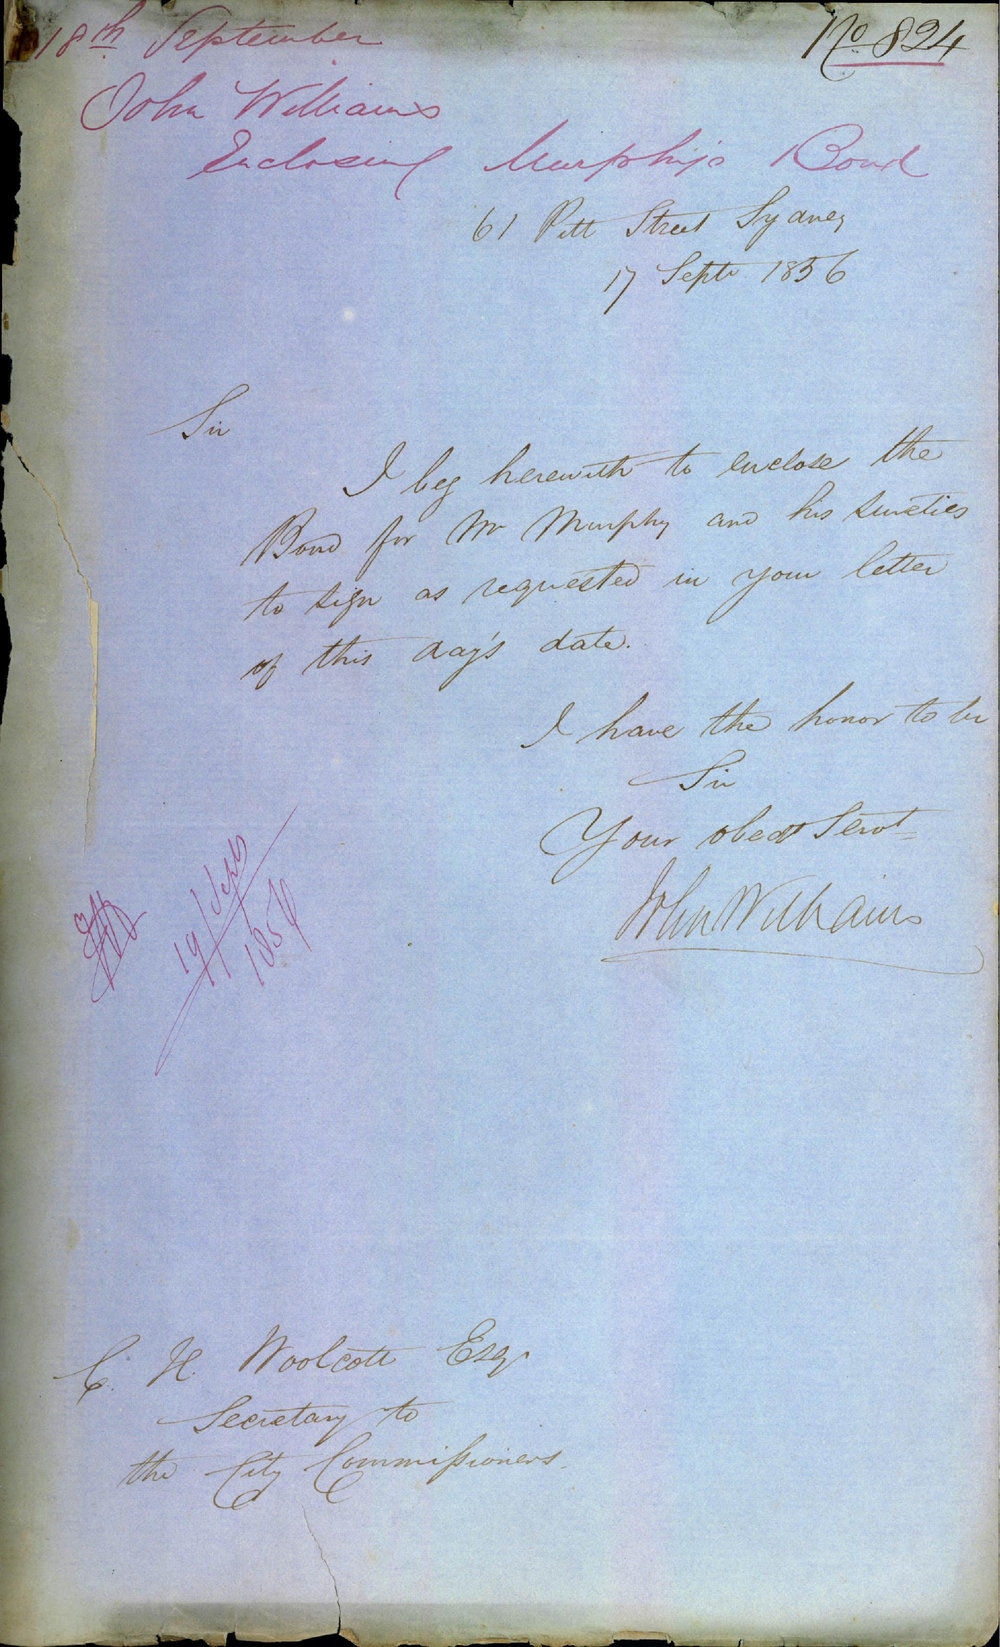 18th September
No 824
John Williams
Enclosing Murphy's Bond
61 Pitt Street Sydney
17 Septr 1856
Sir
I beg herewith to enclose the
Bond for Mr Murphy and his sureties
to sign as requested in your letter
of this day's date.
I have the honor to be
Sir
Your obedt Servt
John Williams
19/Sept
1856
C. H. Woolcott Esqr
Secretary to
the City Commissioners.